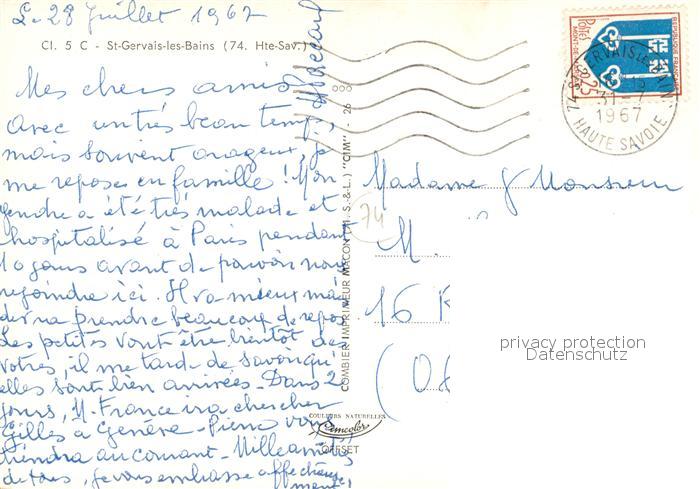 Le 28 Juillet 1967
Cl. 5 C - St-Gervais-les-Bains (74. Hte-Sav.)
Mes chers amis
Avec un très beau temps,
mais souvent orageux, je
me repose en famille ! Mon
gendre a été très malade et
hospitalisé à Paris pendant
10 jours avant de pouvoir nous
rejoindre ici. Il va mieux mais
devra prendre beaucoup de repos
Les petites vont être bientôt des
vôtres, il me tarde de savoir qu'
elles sont bien arrivées. Dans 2
jours, M. France ira chercher
Gilles à Genève. Pierre vous
tiendra au courant. Mille amitiés
de tous, je vous embrasse affectueuse
ment,
COMBIER IMPRIMEUR MACON (M. S.-& L.) "CIM" - 26 088
COULEURS NATURELLES
Cimcolor
OFFSET
REPUBLIQUE FRANÇAISE
POSTES
MONT-DE-MARSAN
0,25
74 ST GERVAIS LES BAINS
31 - 7
1967
HAUTE SAVOIE
74
Madame & Monsieur
M.
16
(0
privacy protection
Datenschutz